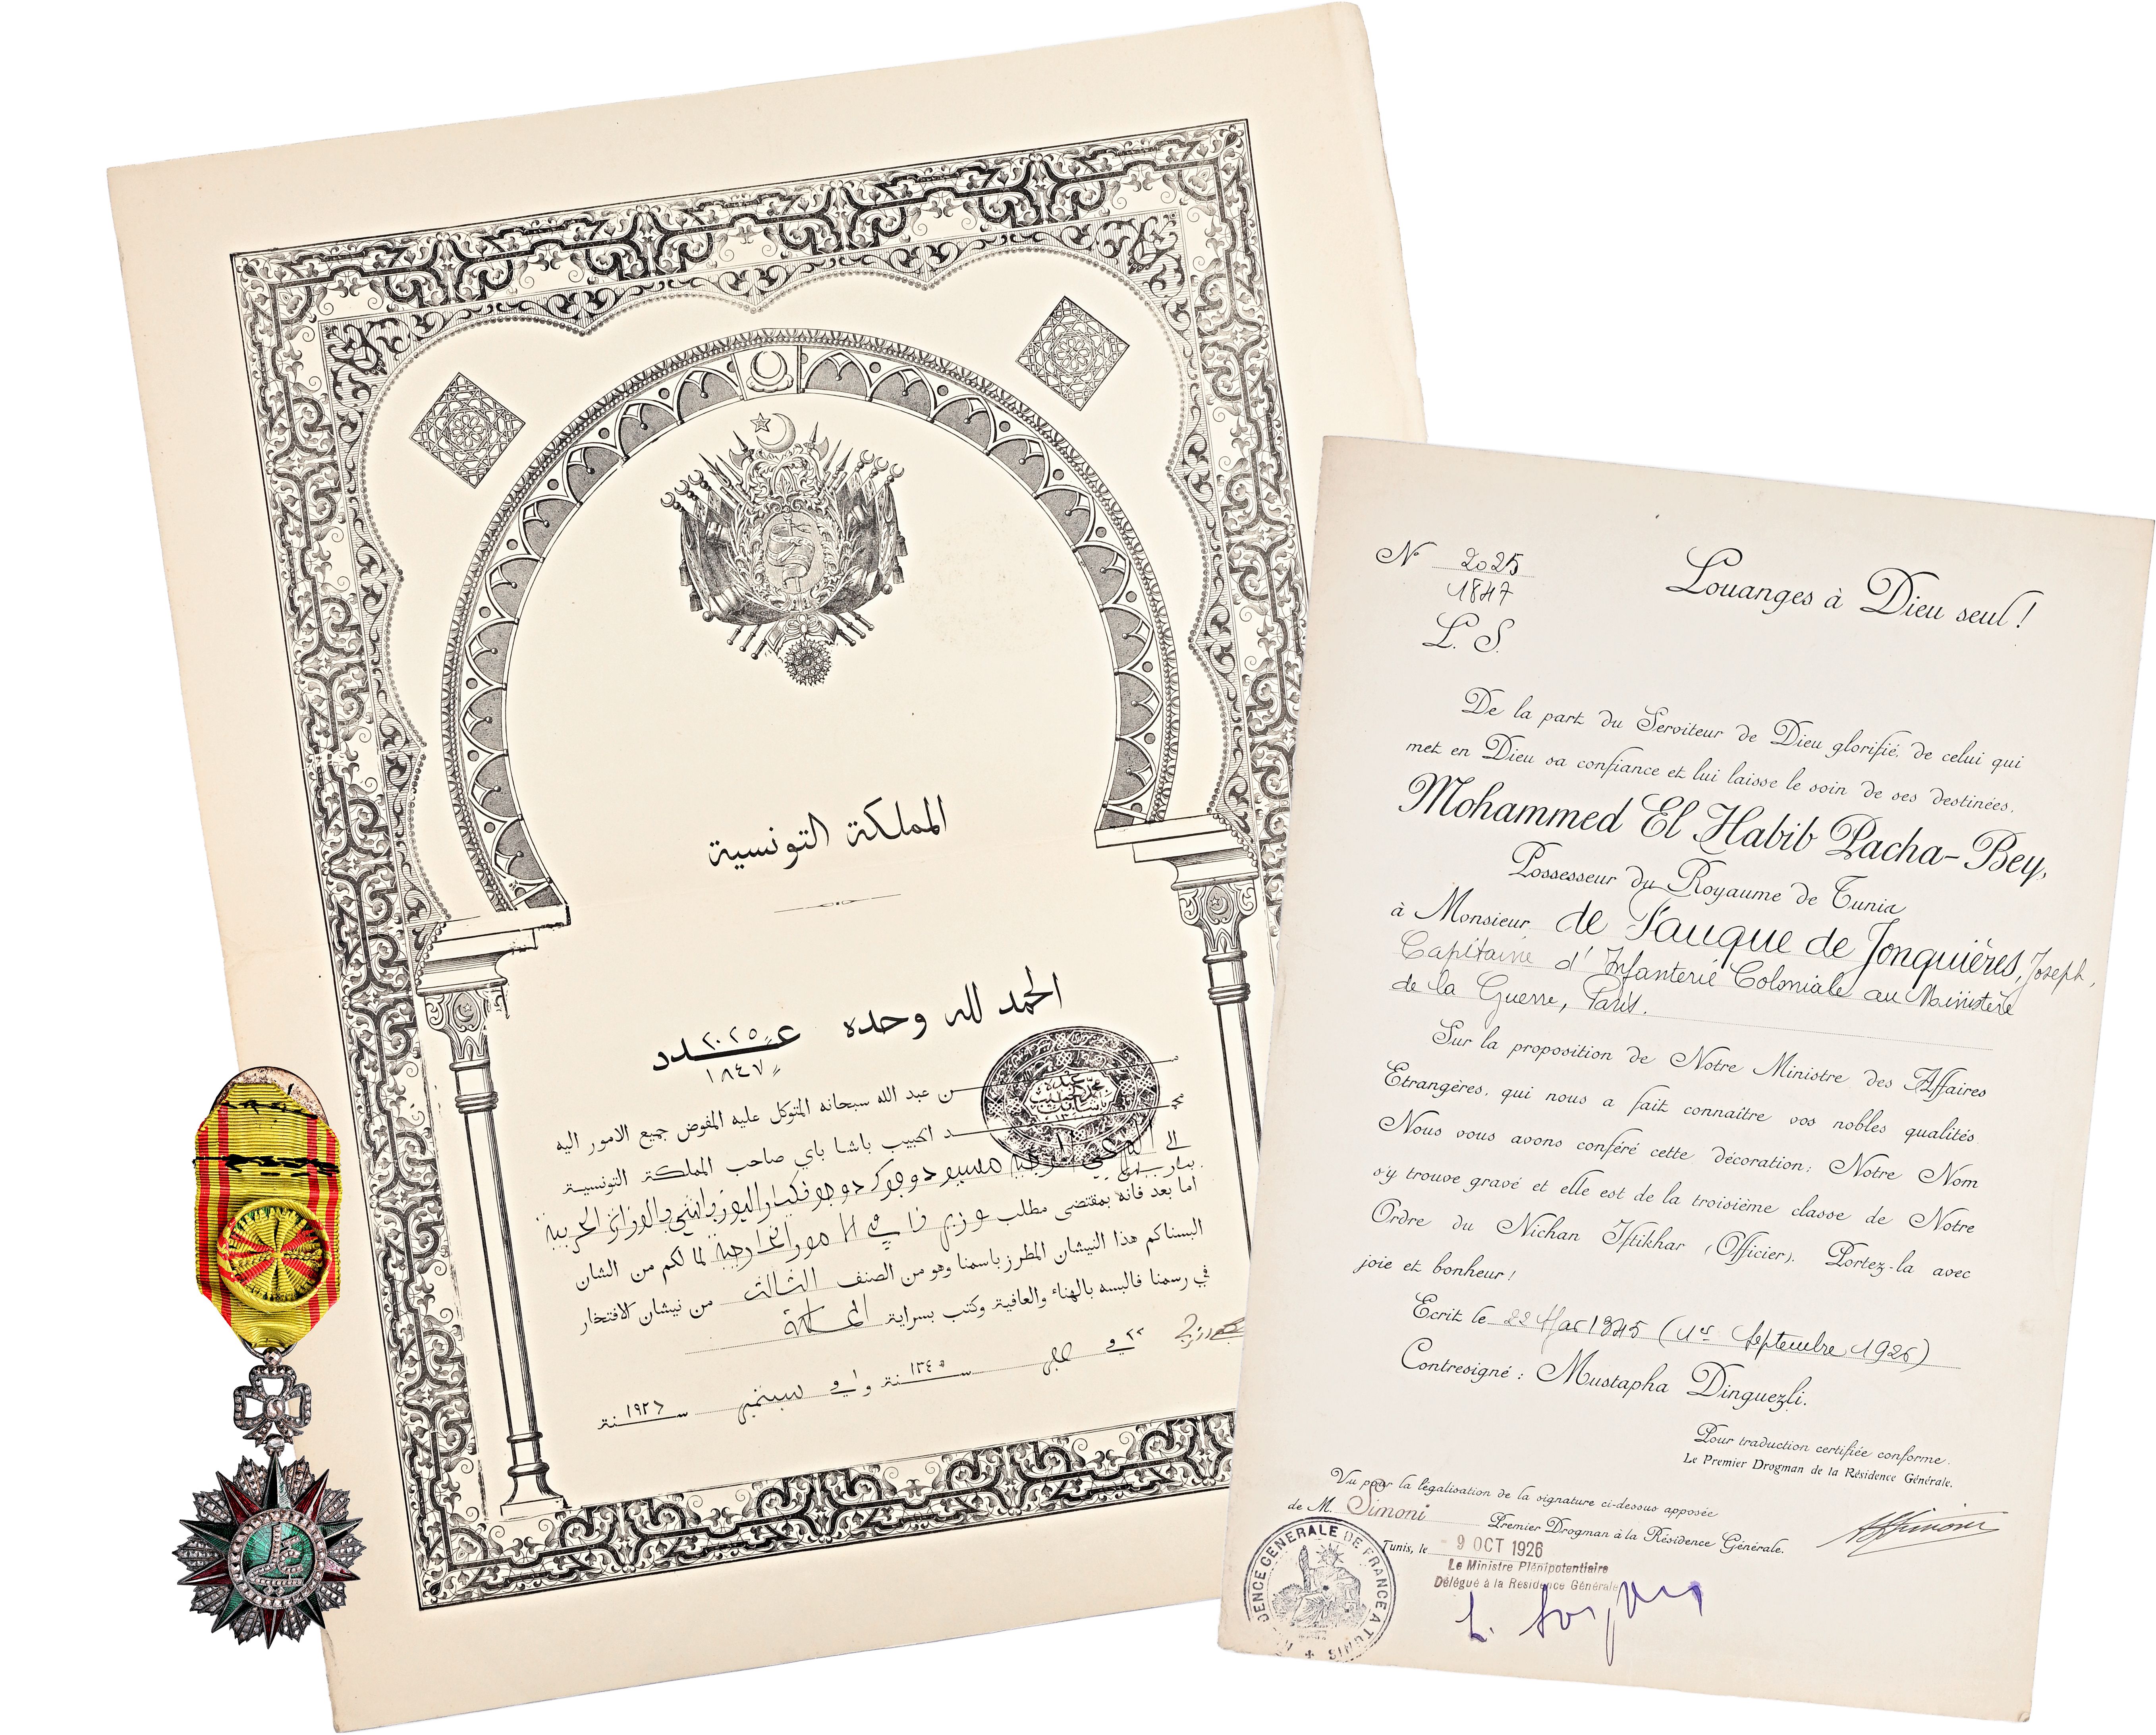 المملكة التونسية
الحمد لله وحده عدد ٢٠٢٥
١٨٤٧
من عبد الله سبحانه المتوكل عليه المفوض جميع الامور اليه
محمد الحبيب باشا باي صاحب المملكة التونسية
الى
اما بعد فانه بمقتضى مطلب وزيرنا في الامور الخارجية لما لكم من الشان
البسناكم هذا النيشان المطرز باسمنا وهو من الصنف الثالث من نيشان الافتخار
في رسمنا فالبسه بالهناء والعافية وكتب بسراية
في ٢٢ سنة ١٣٤٥ وفي ١ سبتمبر سنة ١٩٢٦
N° 2025
1847
L. S.
Louanges à Dieu seul !
De la part du Serviteur de Dieu glorifié, de celui qui
met en Dieu sa confiance et lui laisse le soin de ses destinées.
Mohammed El Habib Pacha-Bey,
Possesseur du Royaume de Tunis
à Monsieur de Fauque de Jonquières, Joseph,
Capitaine d'Infanterie Coloniale au Ministère
de la Guerre, Paris.
Sur la proposition de Notre Ministre des Affaires
Etrangères, qui nous a fait connaître vos nobles qualités
Nous vous avons conféré cette décoration; Notre Nom
s'y trouve gravé et elle est de la troisième classe de Notre
Ordre du Nichan Iftikhar (Officier). Portez-la avec
joie et bonheur !
Ecrit le 22 1345 (1er Septembre 1926)
Contresigné : Mustapha Dinguezli.
Pour traduction certifiée conforme.
Le Premier Drogman de la Résidence Générale.
Vu pour la légalisation de la signature ci-dessus apposée
de M. Simoni Premier Drogman à la Résidence Générale.
Tunis, le - 9 OCT 1926
Le Ministre Plénipotentiaire
Délégué à la Résidence Générale
DENCE GENERALE DE FRANCE A TUNIS